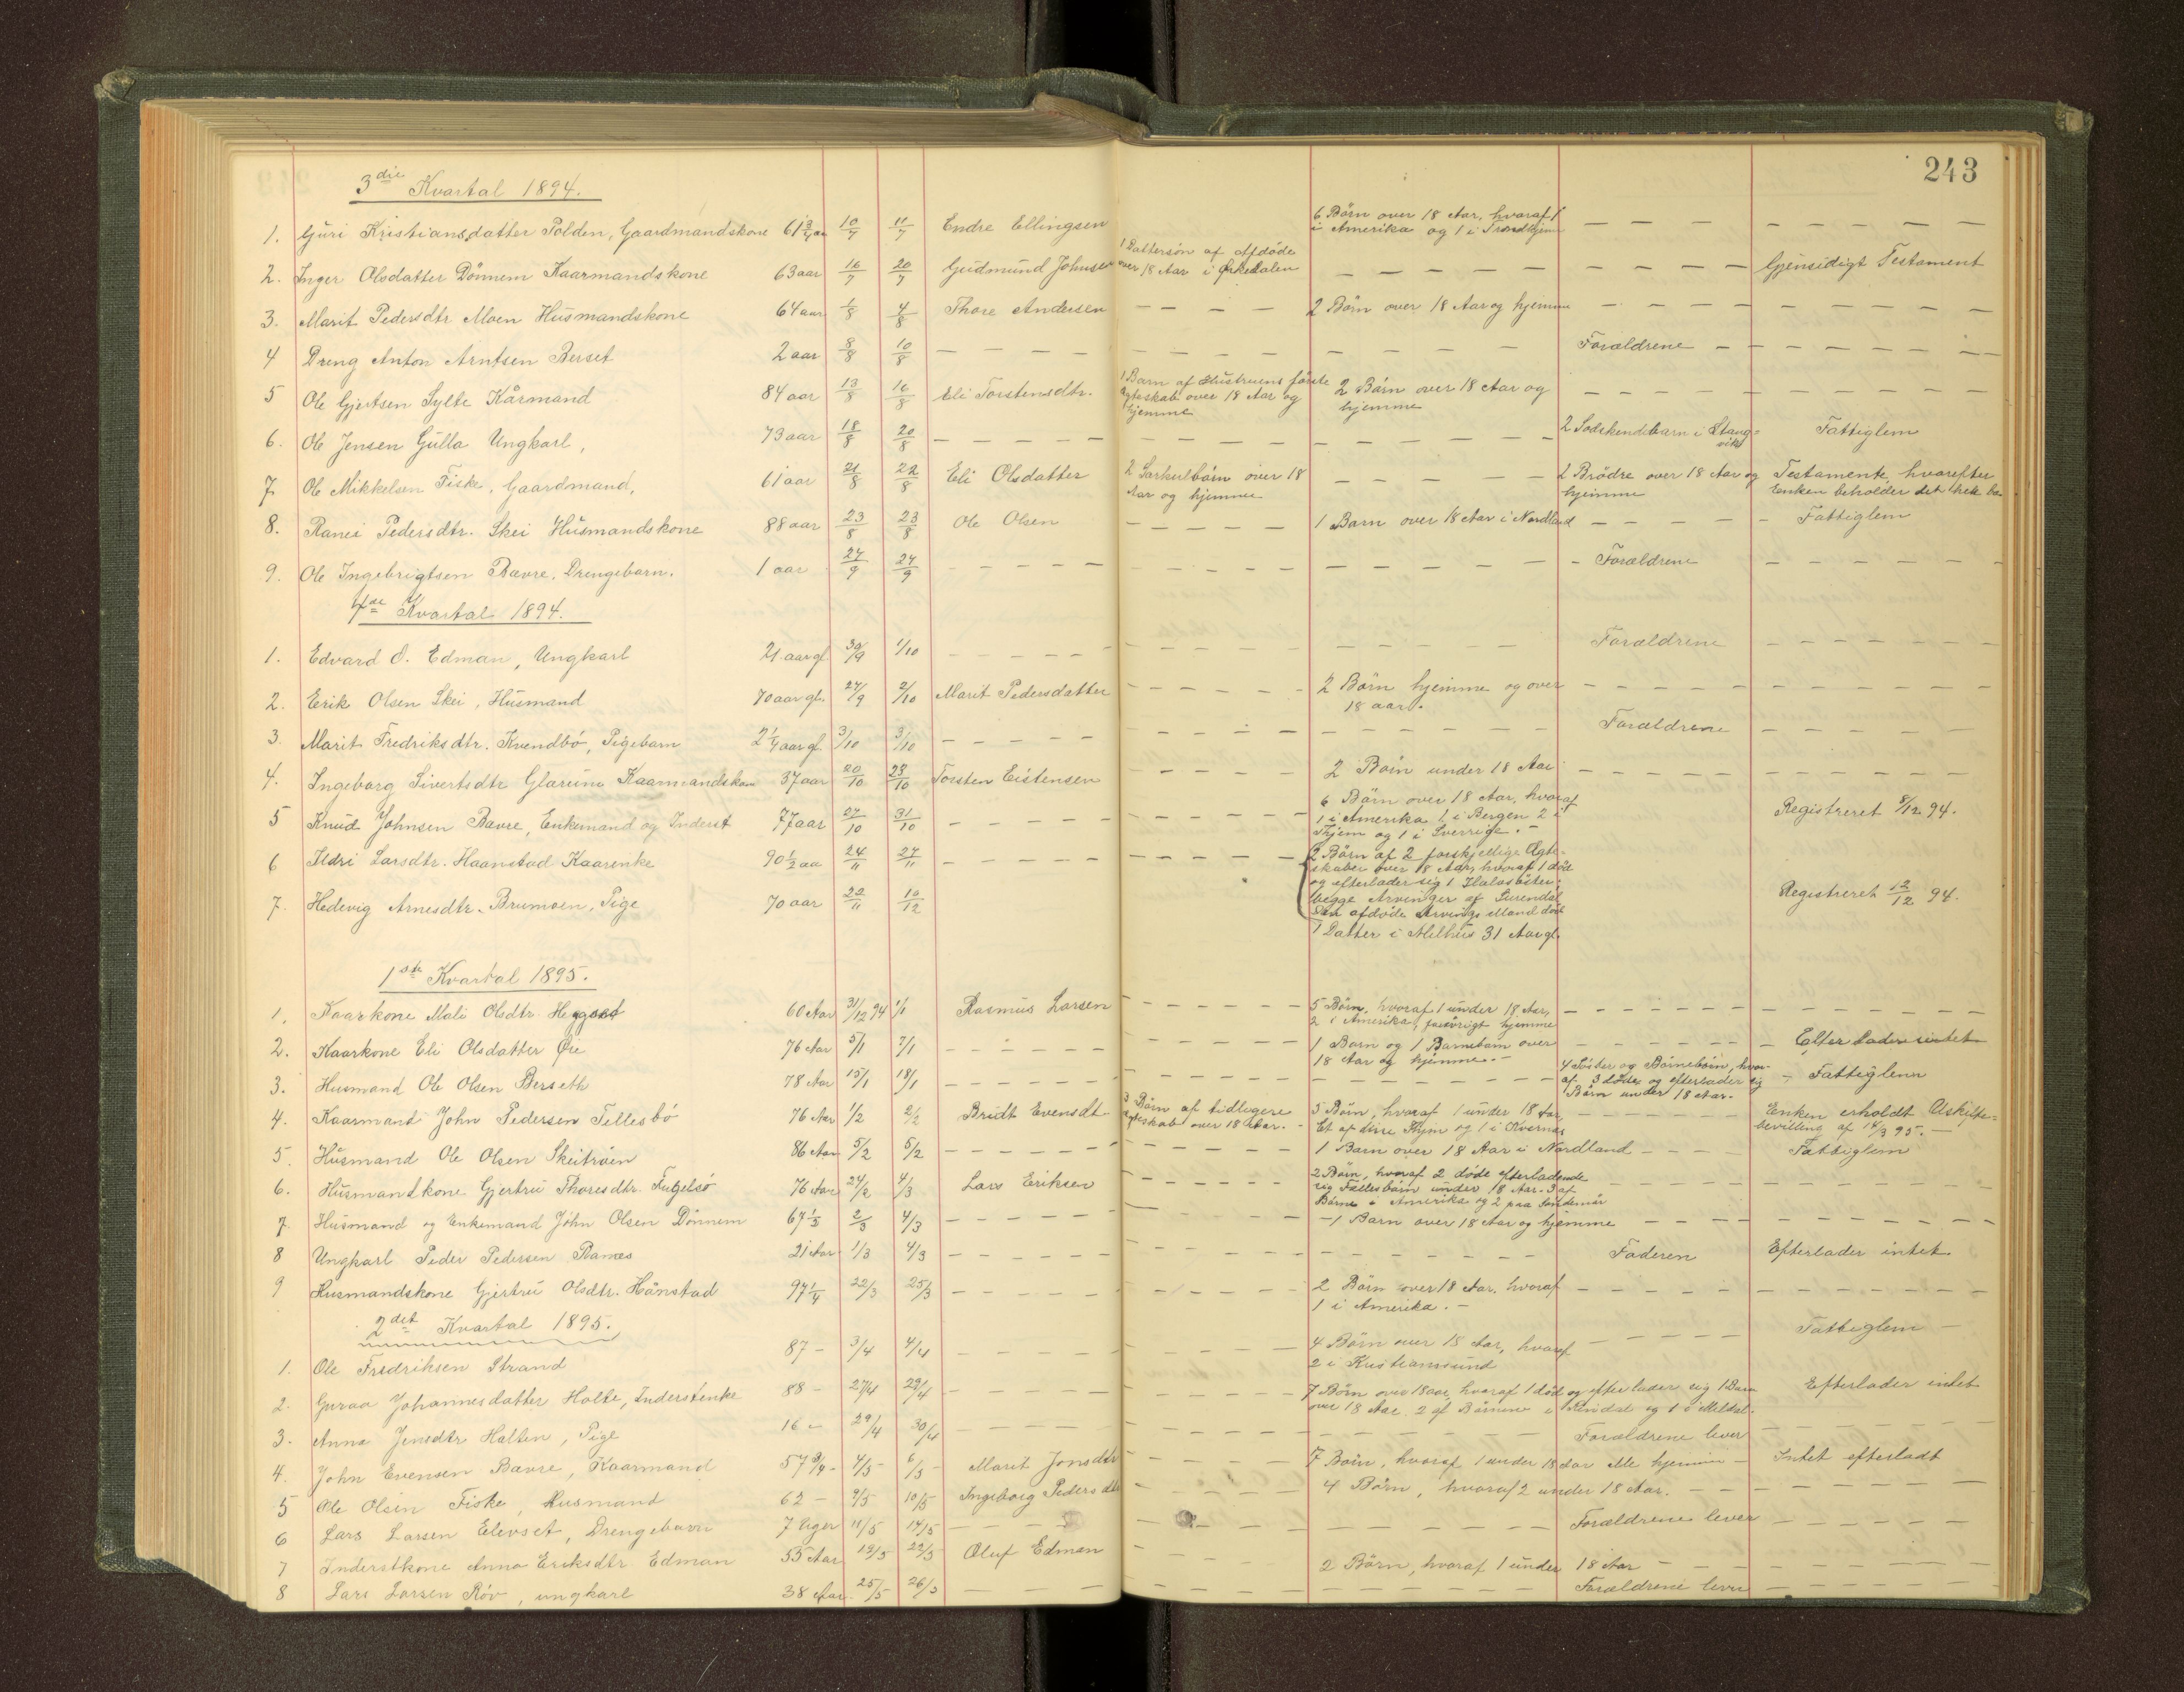 243
3die Kvartal 1894.
1. Guri Kristiansdatter Polden, Gaardmandskone 61 3/4 aar 10/7 11/7 Endre Ellingsen — 6 Börn over 18 Aar, hvoraf 1 — — — —
i Amerika og 1 i Trondhjem
2. Inger Olsdatter Dönnem Kaarmandskone 63 aar 16/7 20/7 Gudmund Johnsen 1 Dattersön af Afdöde — — — — Gjensidigt Testament
over 18 Aar i Orkedalen
3. Marit Pedersdtr Moen Husmandskone 64 aar 1/8 4/8 Thore Andersen — — — 2 Börn over 18 Aar og hjemme — — — —
4 Dreng Anton Arntsen Berset 2 aar 8/8 10/8 — — — — Forældrene — — —
5 Ole Gjertsen Sylte Kårmand 84 aar 13/8 16/8 Eli Torstensdtr. 1 Barn af Hustruens förste 2 Börn over 18 Aar og — — — —
Ægteskab over 18 Aar og hjemme
hjemme
6. Ole Jensen Gulla Ungkarl, 73 aar 18/8 20/8 — — — — 2 Södskendebarn i Stang- Fattiglem
vik
7. Ole Mikkelsen Fiske, Gaardmand, 61 aar 21/8 22/8 Eli Olsdatter 2 Særkulbörn over 18 — — — 2 Brödre over 18 Aar og Testamente, hvorefter
Aar og hjemme hjemme Enken beholder det hele bo
8. Ranei Pedersdtr. Skei Husmandskone 88 aar 23/8 23/8 Ole Olsen — — — 1 Barn over 18 Aar i Nordland — — — Fattiglem
9. Ole Ingebrigtsen Bævre, Drengebarn. 1 aar 27/9 27/9 — — — — Forældrene — — —
4de Kvartal 1894.
1. Edvard O. Edman, Ungkarl 21 aar gl 30/9 1/10 — — — — Forældrene — — —
2. Erik Olsen Skei, Husmand 70 aar gl. 27/9 2/10 Marit Pedersdatter — — — 2 Börn hjemme og over — — — —
18 aar.
3. Marit Fredriksdtr. Kvendbö, Pigebarn 2 1/4 aar gl. 3/10 3/10 — — — — Forældrene — — —
4. Ingeborg Sivertsdtr Glærum Kaarmandskone 37 aar 20/10 28/10 Torsten Eistensen — — — 2 Börn under 18 Aar — — — —
5 Knud Johnsen Bævre, Enkemand og Inderst 77 aar 27/10 31/10 — — — 6 Börn over 18 Aar, hvoraf Registreret 8/12 94.
1 i Amerika 1 i Bergen 2 i
Thjem og 1 i Sverrige. -
6 Ildri Larsdtr. Haanstad Kaarenke 90 1/2 aa 24/11 27/11 — — — 2 Börn af 2 forskjellige Ægte-
skaber over 18 Aar, hvoraf 1 död
og efterlader sig 1
begge Arvinger af Surendal
Den afdöde Arvings Mand död
7. Hedevig Arnesdtr. Brumoen, Pige 70 aar 22/11 10/12 Registreret 12/12 94.
1 Datter i Melhus 31 Aar gl.
1ste Kvartal 1895.
1. Kaarkone Mali Olsdtr. Heggset 60 Aar 31/12 94 1/1 Rasmus Larsen — — — 5 Börn, hvoraf 1 under 18 Aar, — — — —
2 i Amerika, forövrigt hjemme
2. Kaarkone Eli Olsdatter Öie 76 Aar 5/1 7/1 — — — 1 Barn og 1 Barnebarn over — — — Efterlader intet
18 Aar og hjemme. -
3. Husmand Ole Olsen Berseth 78 Aar 15/1 18/1 — — — 4 Söster og Börnebörn, hvor- Fattiglem
af 3 döde og efterlader sig
Börn under 18 Aar.
4. Kaarmand John Pedersen Tellesbö 76 Aar 1/2 2/2 Bridt Evensdt 3 Börn af tidligere 5 Börn, hvoraf 1 under 18 Aar, — — — Enken erholdt Uskifte-
Ægteskab over 18 Aar. - Et af disse Thjem og 1 i Kvernes bevilling af 14/3 95. —
5. Husmand Ole Olsen Skeitröen 86 Aar 5/2 5/2 — — — 1 Barn over 18 Aar i Nordland — — — Fattiglem
6. Husmandkone Gjertru Thoresdtr. Fuglsö 76 Aar 24/2 4/3 Lars Eriksen — — — 2 Börn, hvoraf 2 döde efterladende — — — —
sig Fællesbörn under 18 Aar. 3 af
Börne i Amerika og 2 paa Söndmör
7. Husmand og Enkemand John Olsen Dönnem 67 1/3 2/3 4/3 — — — 1 Barn over 18 Aar og hjemme — — — —
8 Ungkarl Peder Pedersen Bamæs 21 Aar 1/3 4/3 — — — — Faderen Efterlader intet
9 Husmandskone Gjertru Olsdtr. Hånstad 97 1/4 22/3 25/3 — — — 2 Börn over 18 Aar, hvoraf — — — —
1 i Amerika. -
2det Kvartal 1895.
1. Ole Fredriksen Strand 87 - 3/4 4/4 — — — 4 Börn over 18 Aar, hvoraf — — — Fattiglem —
2 i Kristiansund
2. Guraa Johannesdatter Holte, Inderstenke 88 - 27/4 29/4 — — — 7 Börn over 18 aar, hvoraf 1 död og efterlader sig 1 Barn Efterlader intet
over 18 Aar. 2 af Börnene i Rindal og 1 i Meldal.
3. Anna Jensdtr Halten, Pige 16 - 29/4 30/4 — — — — Forældrene lever — — —
4. John Evensen Bævre, Kaarmand 57 3/4 - 4/5 6/5 Marit Jonsdtr — — — 7 Börn, hvoraf 1 under 18 Aar Alle hjemme — Intet efterladt
5 Ole Olsen Fiske, Husmand 62 - 9/5 10/5 Ingeborg Pedersdtr — — — 4 Börn, hvoraf 2 under 18 Aar. — — — —
6 Lars Larsen Elevset, Drengebarn 7 Uger 11/5 14/5 — — — — Forældrene lever — — —
7 Inderstkone Anna Eriksdtr Edman 55 Aar 19/5 22/5 Oluf Edman — — 2 Börn, hvoraf 1 under 18 Aar — — —
8 Lars Larsen Röv, ungkarl 38 Aar 25/5 26/5 — — — — Forældrene lever — — —